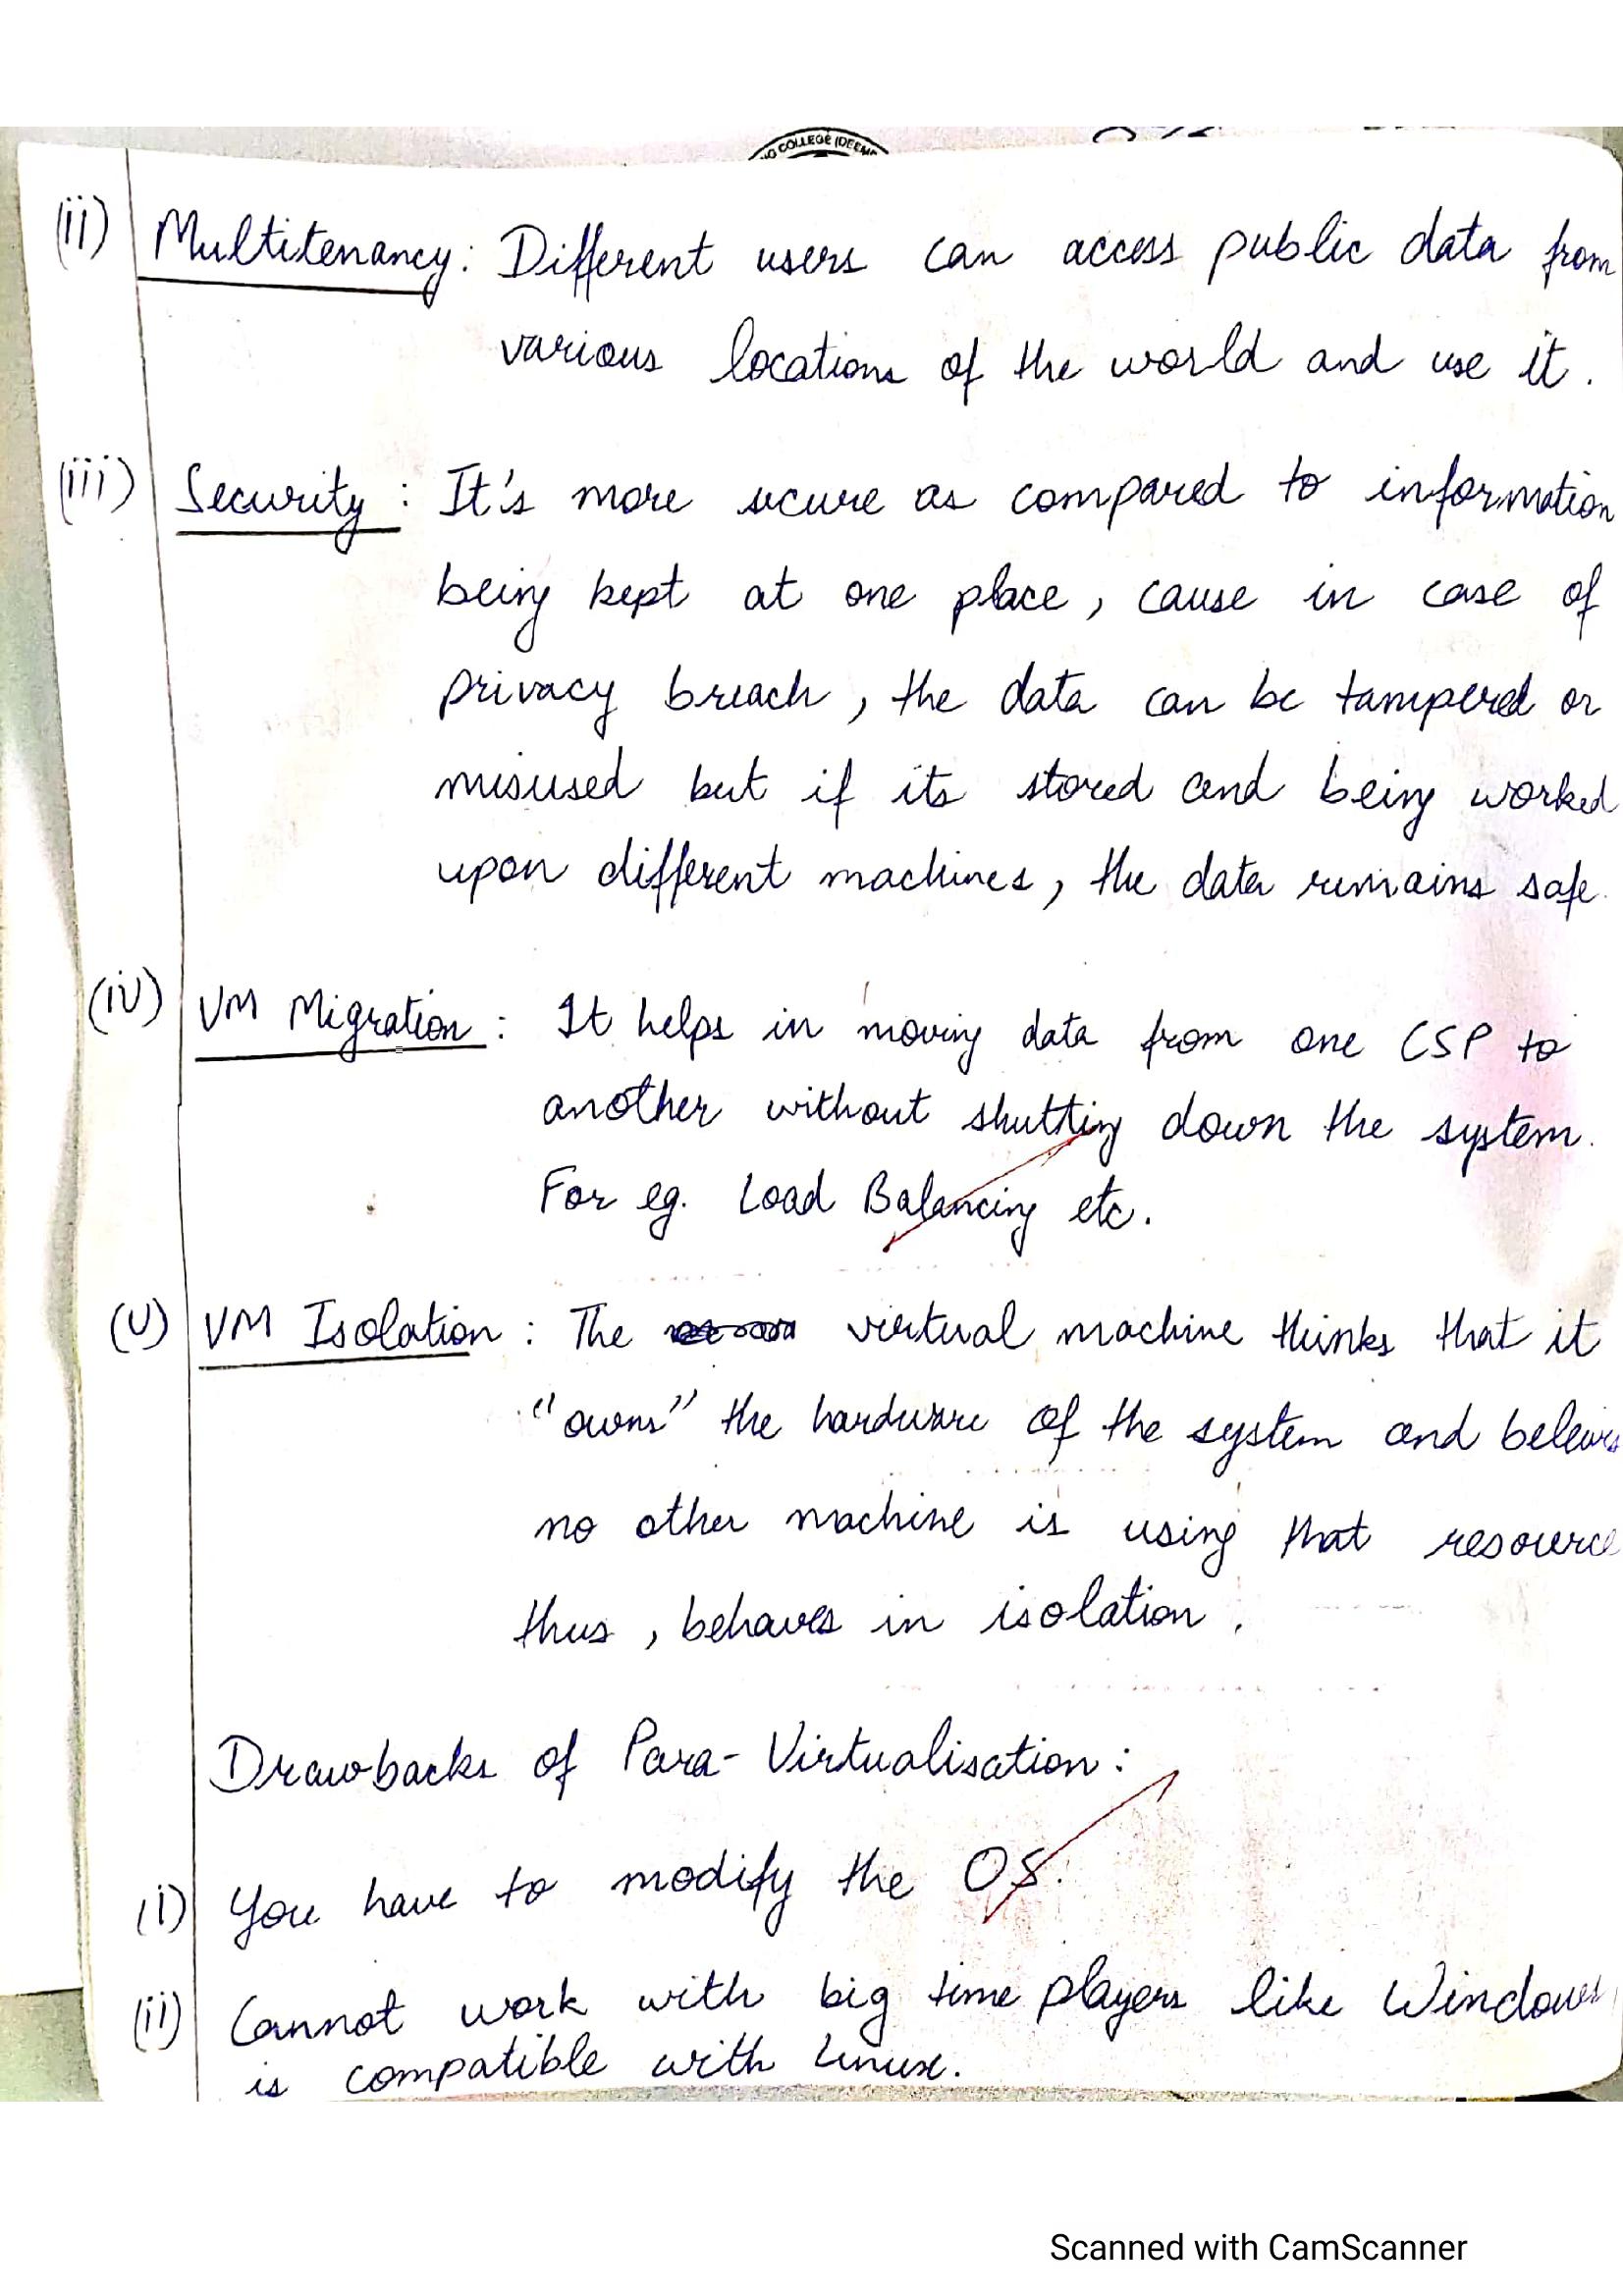 G COLLEGE (DEEM
(ii) Multitenancy: Different users can access public data from
various locations of the world and use it.
(iii) Security: It's more secure as compared to information
being kept at one place, cause in case of
privacy breach, the data can be tampered or
misused but if its stored and being worked
upon different machines, the data remains safe.
(iv) VM Migration: It helps in moving data from one CSP to
another without shutting down the system.
For eg. Load Balancing etc.
(v) VM Isolation: The virtual machine thinks that it
"owns" the hardware of the system and beleives
no other machine is using that resource
thus, behaves in isolation.
Drawbacks of Para-Virtualisation:
(i) You have to modify the OS.
(ii) Cannot work with big time players like Windows,
is compatible with Linux.
Scanned with CamScanner